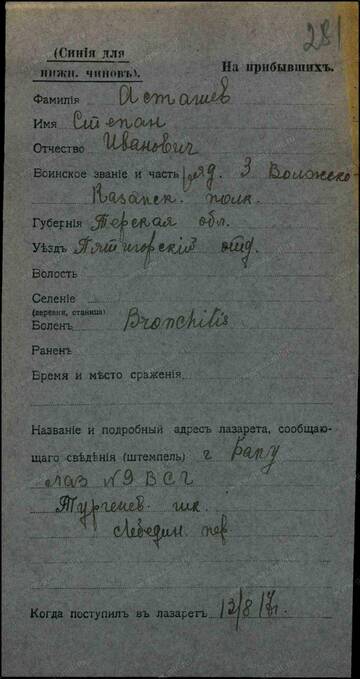 281
(Синія для
нижн. чиновъ).
На прибывшихъ.
Фамилія Асташев
Имя Степан
Отчество Иванович
Воинское званіе и часть ряд. 3 Волжско-
Казанск. полк.
Губернія Терская обл.
Уѣздъ Пятигорскій отд.
Волость
Селеніе
(деревня, станица)
Боленъ Bronchitis
Раненъ
Время и мѣсто сраженія
Названіе и подробный адресъ лазарета, сообщаю-
щаго свѣдѣнія (штемпель) г Баку
Лаз N 9 ВСГ
Тургенев. шк.
Лебедин. пер
Когда поступилъ въ лазаретъ 12/8